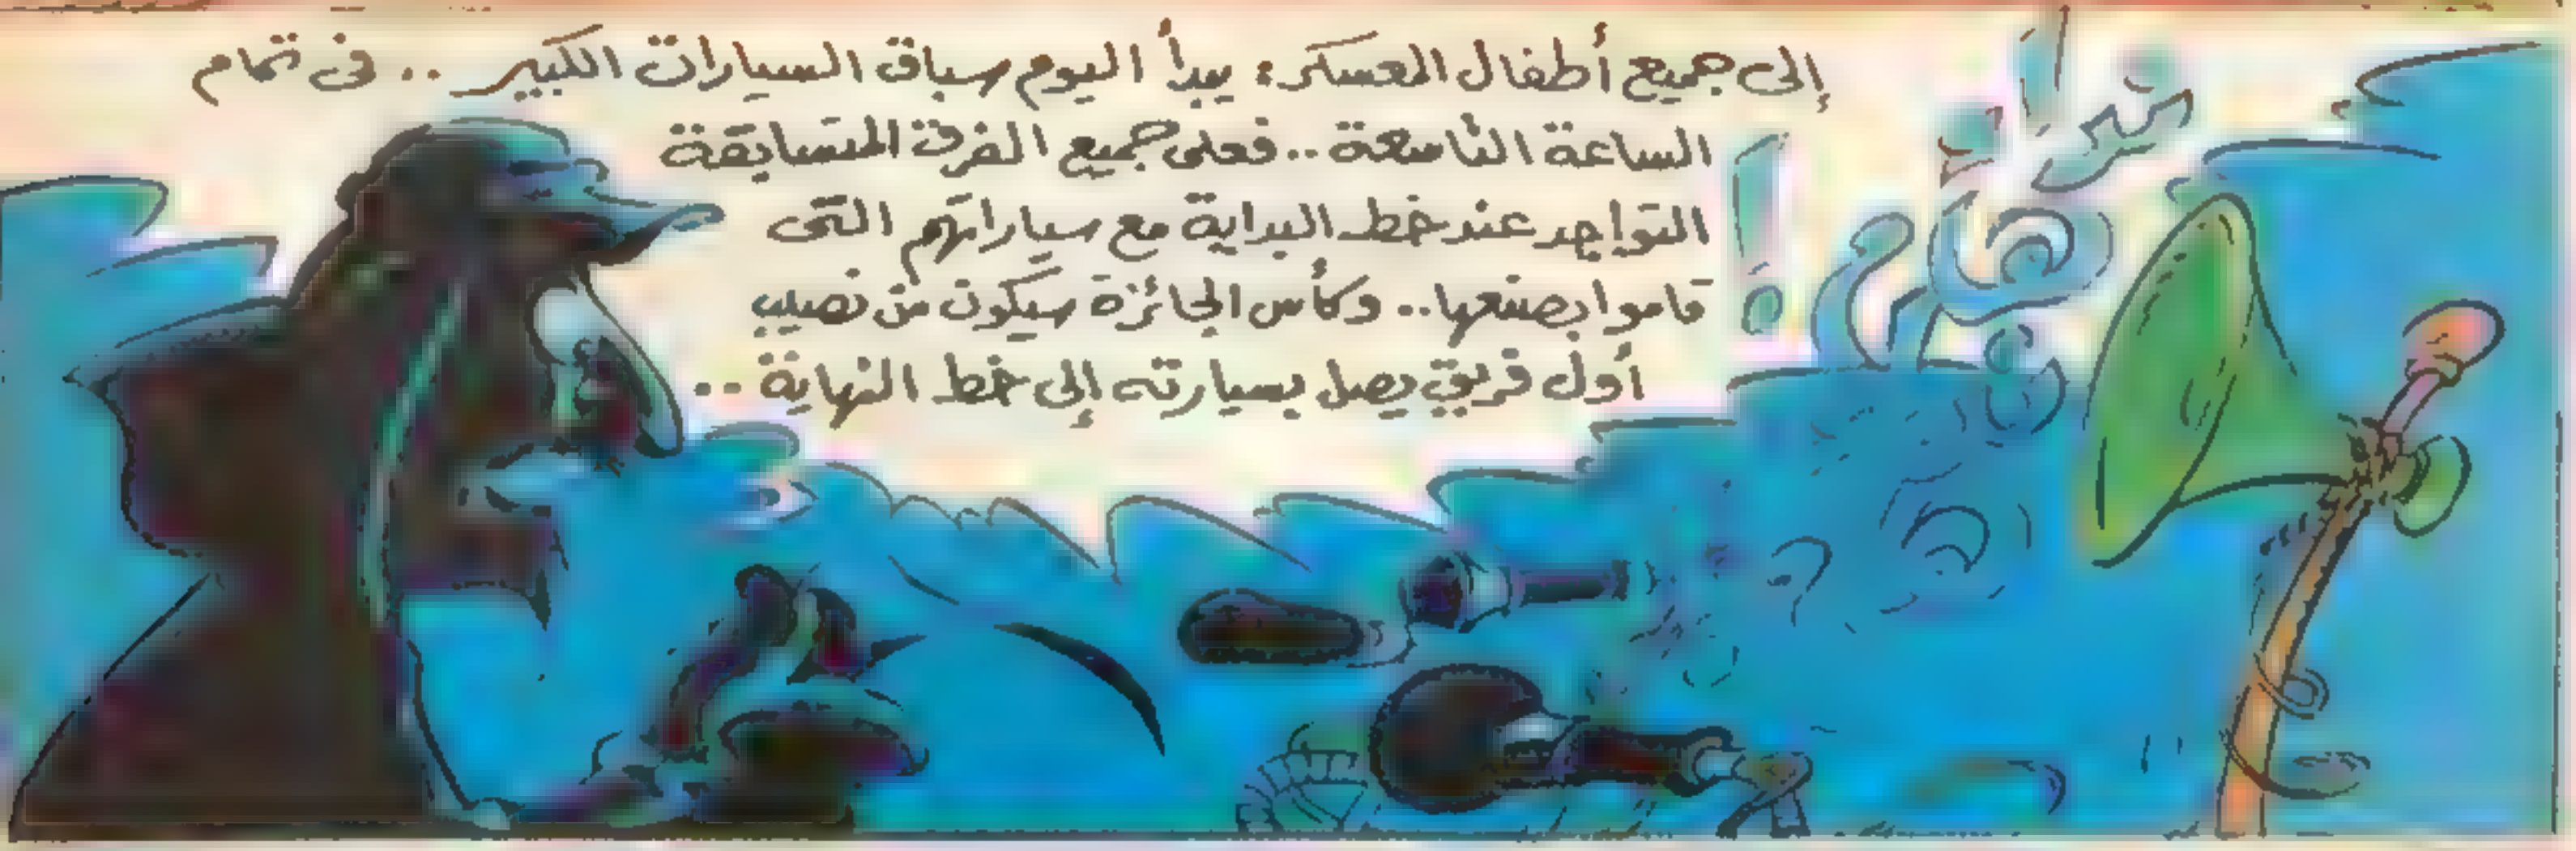 إلى جميع أطفال المعسكر: يبدأ اليوم سباق السيارات الكبير .. فى تمام
الساعة التاسعة .. فعلى جميع الفرق المتسابقة
التواجد عند خط البداية مع سياراتهم التى
قاموا بصنعها .. وكأس الجائزة سيكون من نصيب
أول فريق يصل بسيارته إلى خط النهاية ..